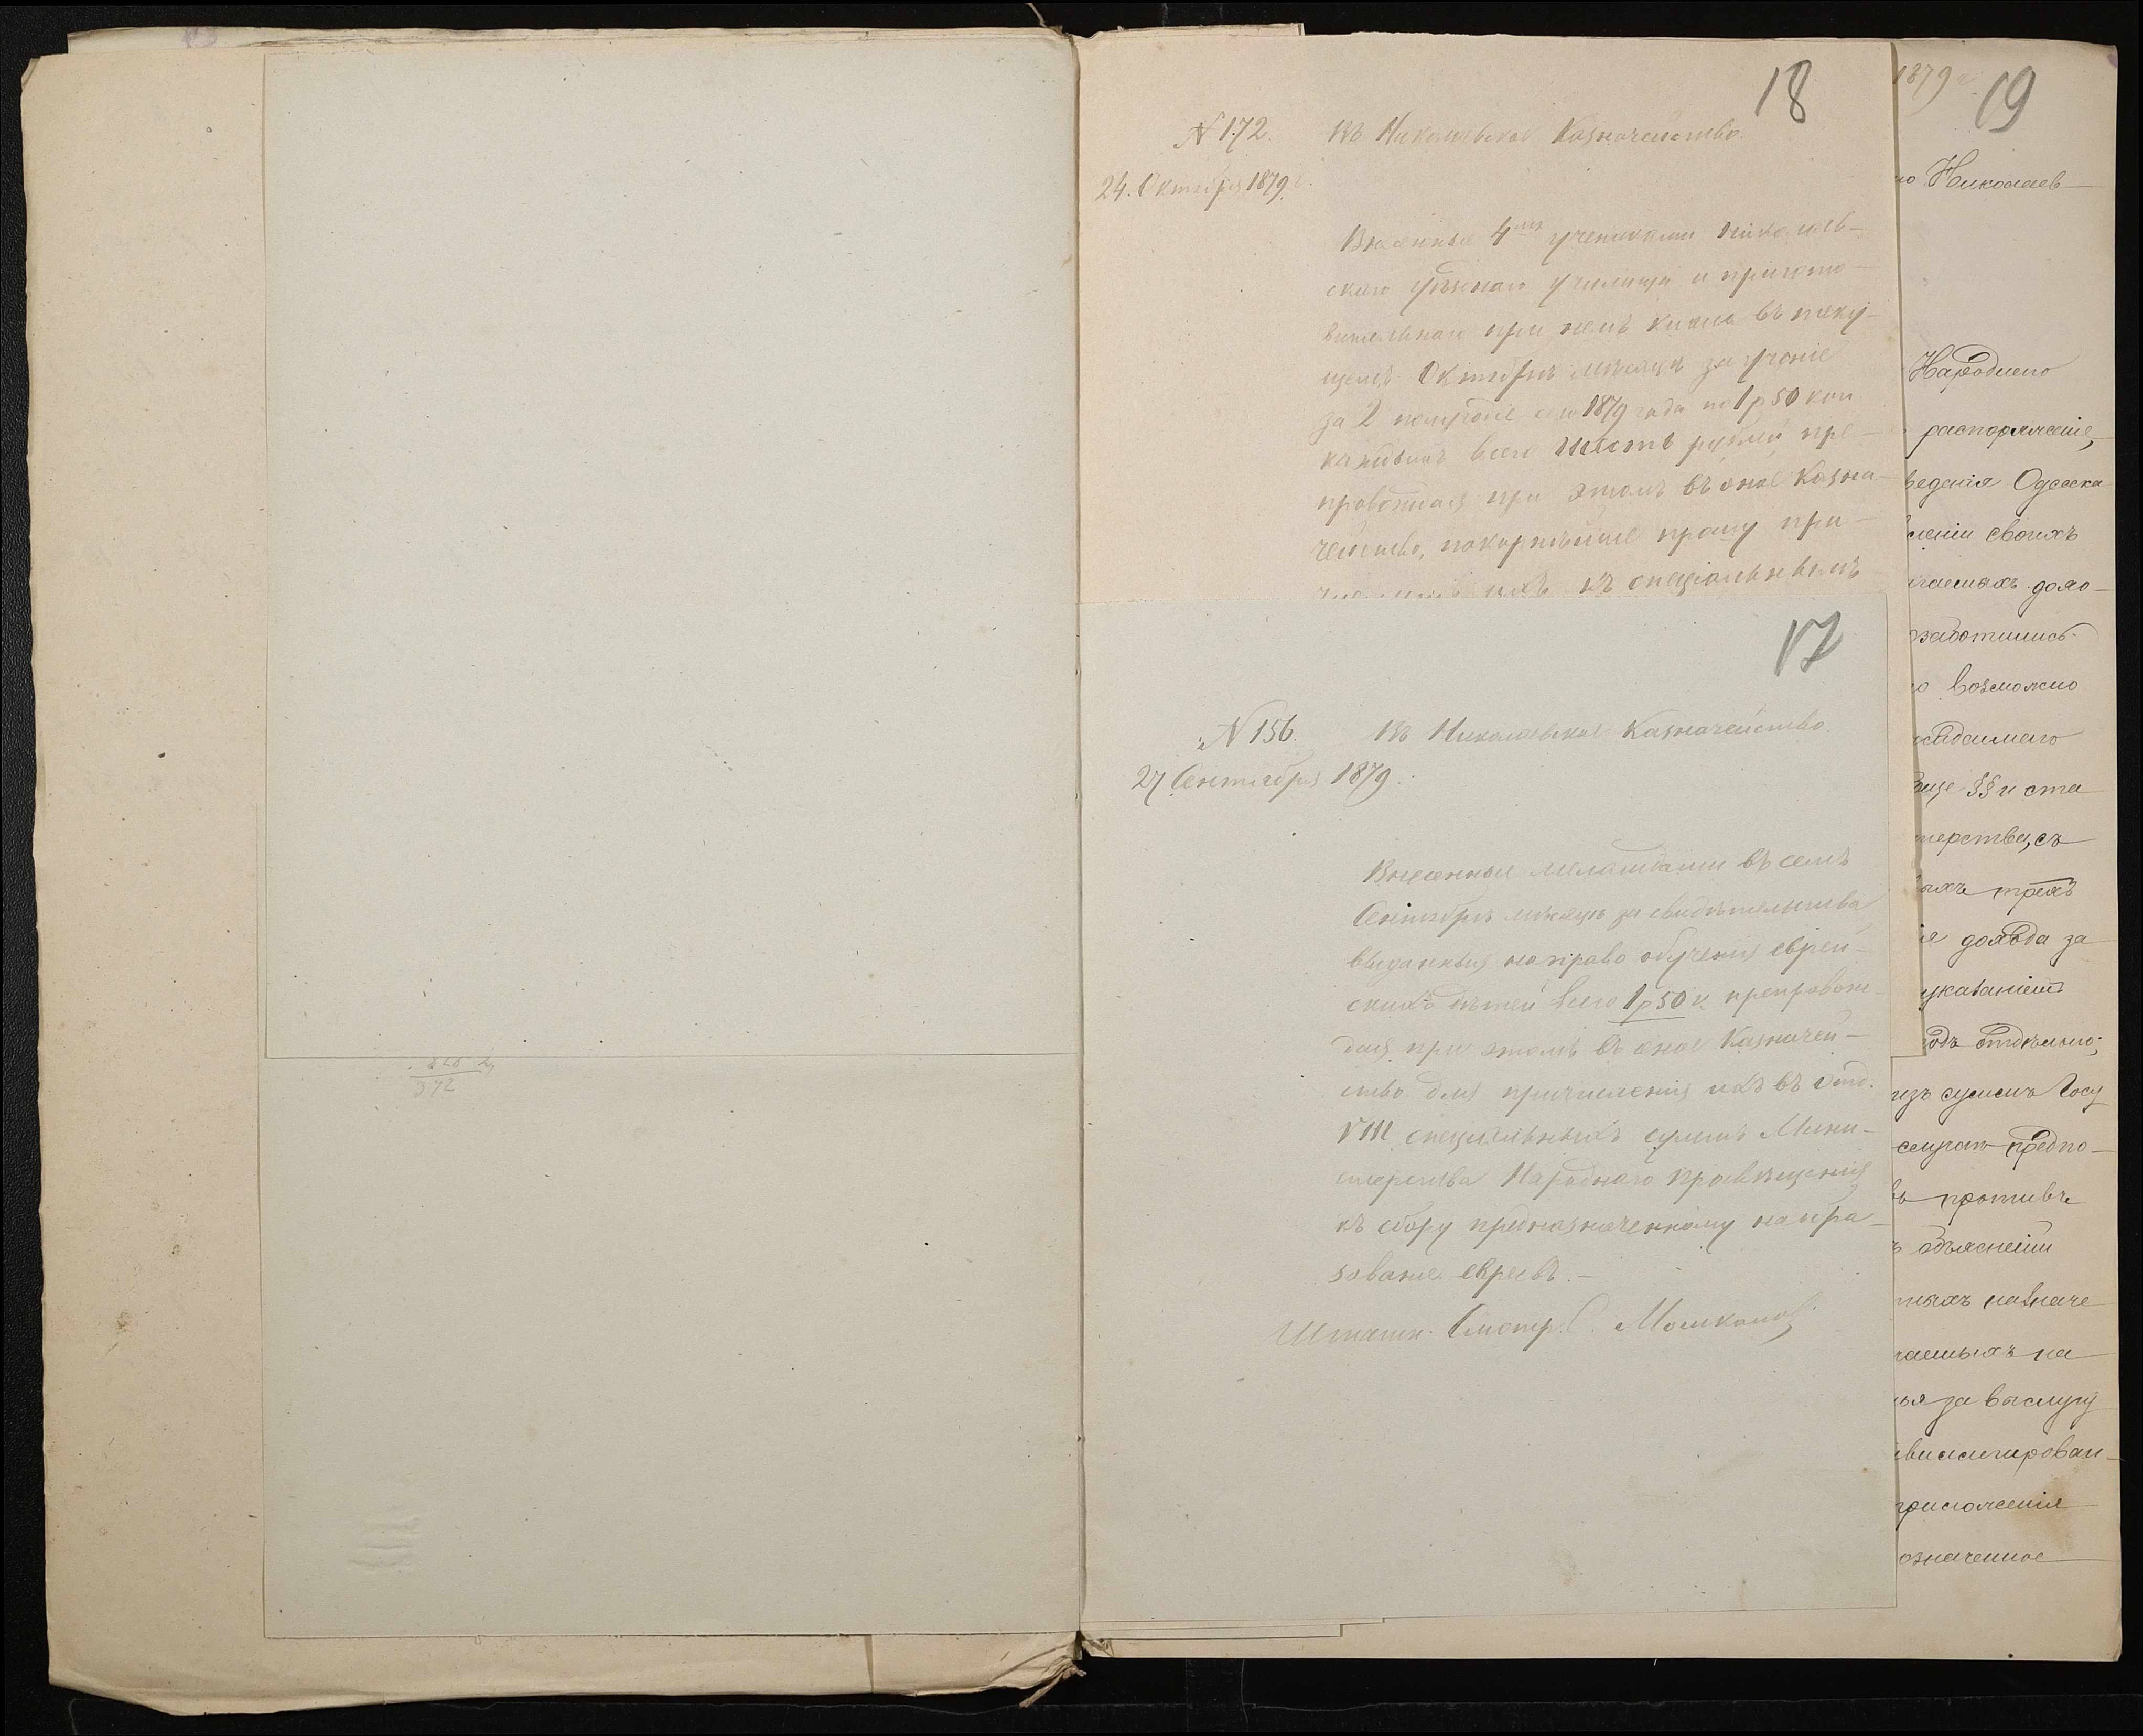 18
№ 172. Въ Николаевское Казначейство.
24. Октября 1879 г.
Внесенные 4мя учениками Николаев-
скаго Уѣзднаго училища и пригото-
вительнаго при немъ класса въ теку-
щемъ Октябрѣ мѣсяцѣ за ученіе
за 2 полугодіе сего 1879 года по 1 р 50 коп
каждымъ всего шесть рублей, пре-
провождая при этомъ въ оное Казна-
чейство, покорнѣйше прошу при-
числить ихъ къ спеціальнымъ
17
№ 156. Въ Николаевское Казначейство.
27 Сентября 1879.
Внесенные меламдами въ семъ
Сентябрѣ мѣсяцѣ за свидѣтельства
выданныя на право обученія еврей-
скихъ дѣтей всего 1 р 50 к препровож-
дая при этомъ въ оное Казначей-
ство для причисленія ихъ въ отд.
VIII спеціальныхъ суммъ Мини-
стерства Народнаго Просвѣщенія
къ сбору предназначенному на обра-
зованіе евреевъ. —
Штатн. Смотр.
372
1879 г.
19
Николаев-
Народнаго
распоряженіе,
веденія Одесска
леніи своихъ
дохо-
озаботились
возможно
§§ и ста
терства, съ
трехъ
дохода за
указаніемъ
отдѣльно;
изъ суммъ Госу
предпо-
противъ
объясненіи
назначе
на
за выслугу
приложенія
означенное